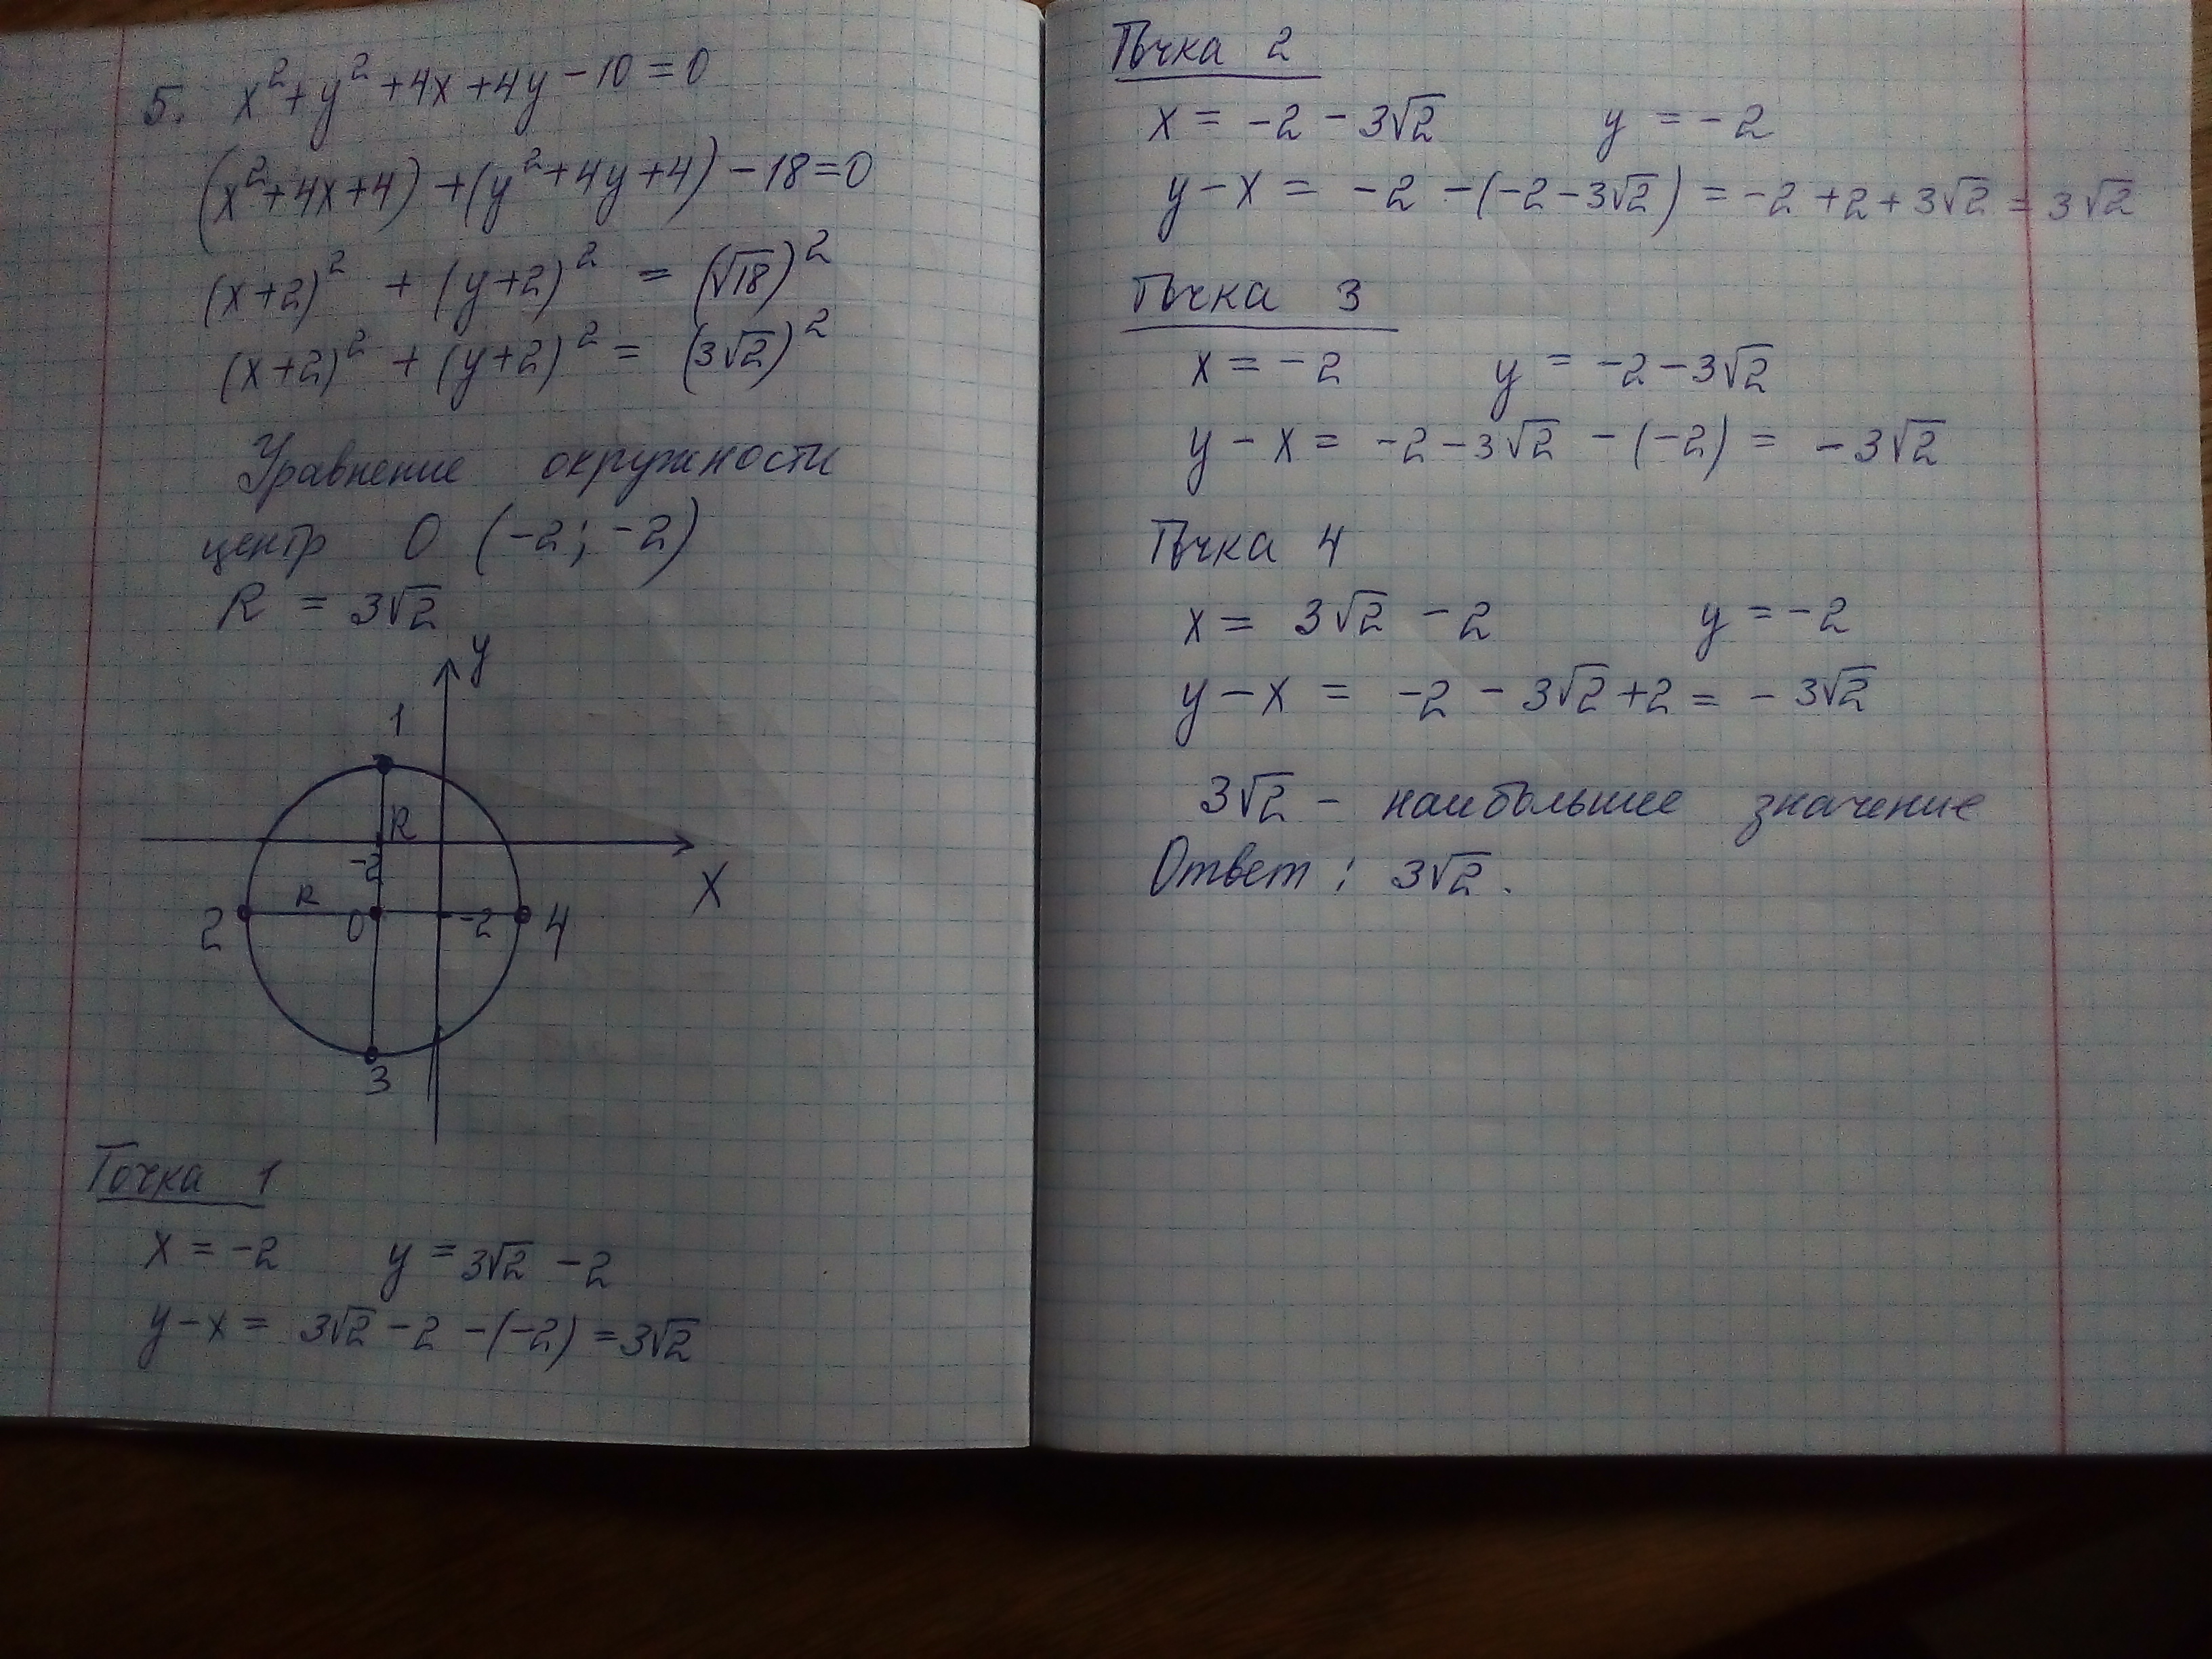 5. x² + y² + 4x + 4y − 10 = 0
(x² + 4x + 4) + (y² + 4y + 4) − 18 = 0
(x+2)² + (y+2)² = (√18)²
(x+2)² + (y+2)² = (3√2)²
Уравнение окружности
центр O (−2; −2)
R = 3√2
y
1
R
−2
X
2
R
O
−2
4
3
Точка 1
x = −2 y = 3√2 − 2
y − x = 3√2 − 2 − (−2) = 3√2
Точка 2
x = −2 − 3√2 y = −2
y − x = −2 − (−2 − 3√2) = −2 + 2 + 3√2 = 3√2
Точка 3
x = −2 y = −2 − 3√2
y − x = −2 − 3√2 − (−2) = −3√2
Точка 4
x = 3√2 − 2 y = −2
y − x = −2 − 3√2 + 2 = −3√2
3√2 − наибольшее значение
Ответ: 3√2.